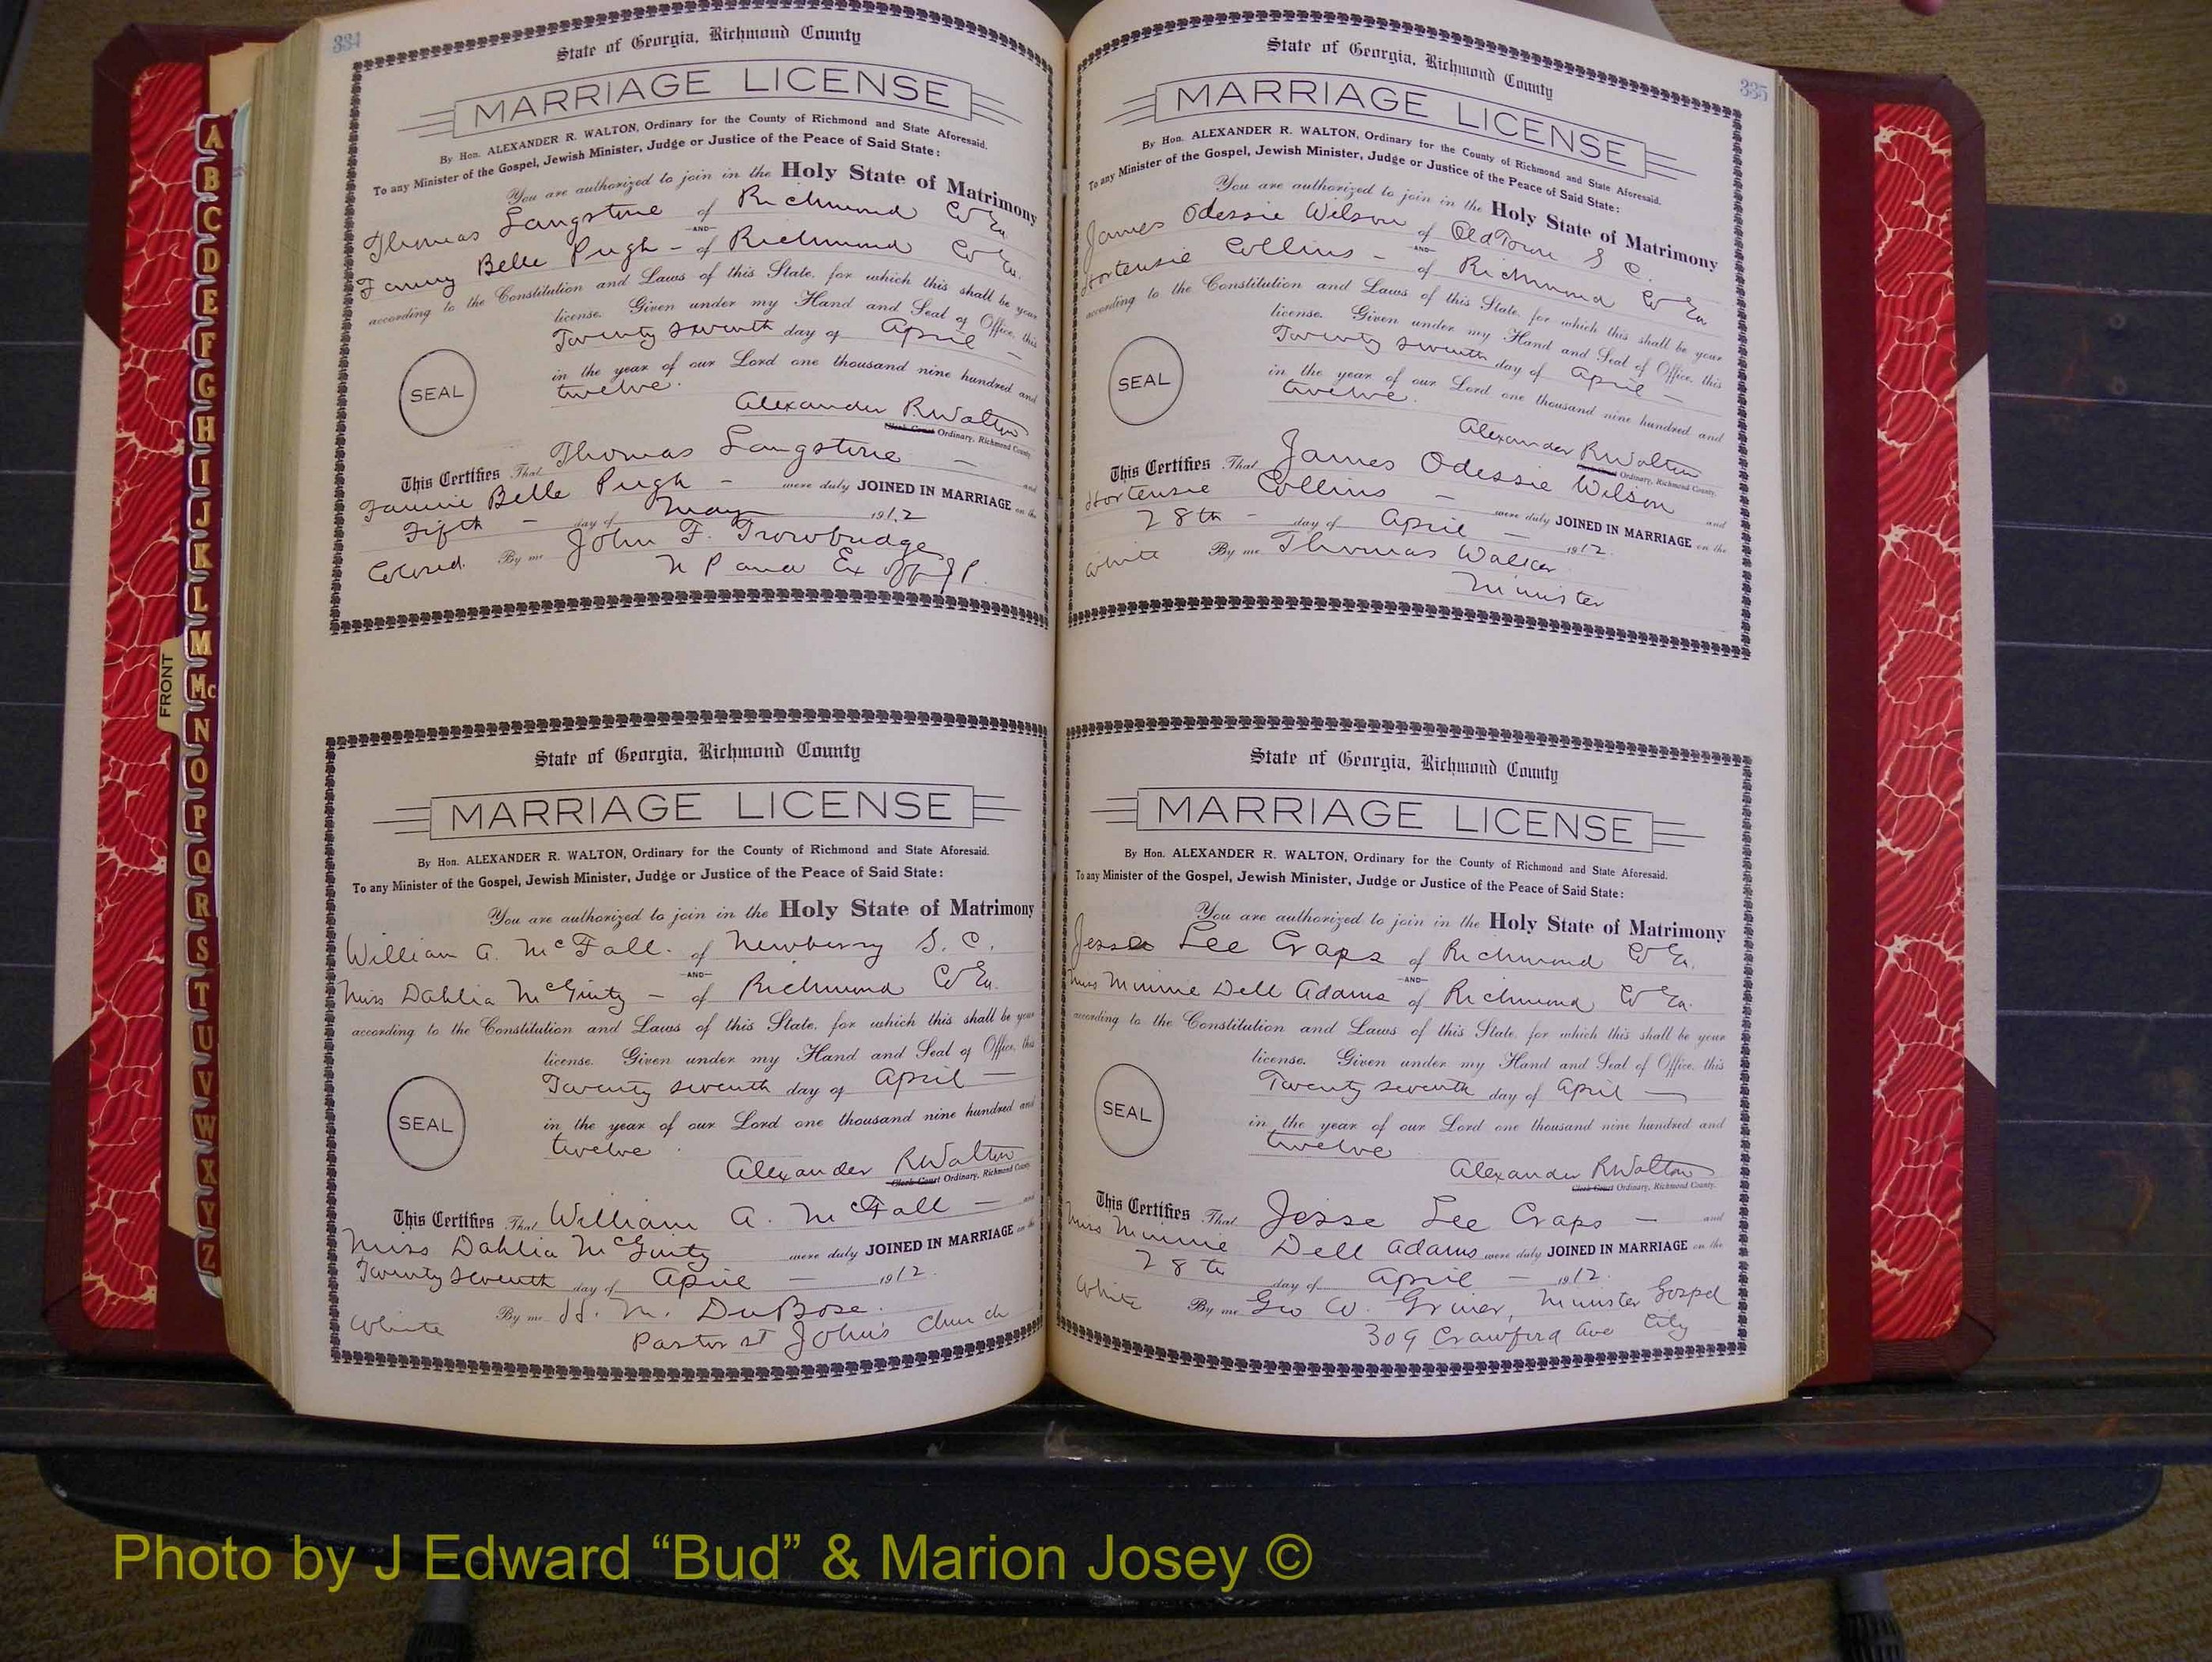 334
State of Georgia, Richmond County
MARRIAGE LICENSE
By Hon. ALEXANDER R. WALTON, Ordinary for the County of Richmond and State Aforesaid.
To any Minister of the Gospel, Jewish Minister, Judge or Justice of the Peace of Said State:
You are authorized to join in the Holy State of Matrimony
Thomas Langstine of Richmond Co Ga
AND
Fanny Belle Pugh - of Richmond Co Ga.
according to the Constitution and Laws of this State, for which this shall be your
license. Given under my Hand and Seal of Office, this
Twenty seventh day of April -
in the year of our Lord one thousand nine hundred and
twelve.
SEAL
Alexander R Walton
Clerk Court Ordinary, Richmond County
This Certifies That Thomas Langstine - and
Fannie Belle Pugh - were duly JOINED IN MARRIAGE on the
Fifth - day of May 1912
Colored. By me John F. Trowbridge
N P and Ex off J P.
State of Georgia, Richmond County
MARRIAGE LICENSE
By Hon. ALEXANDER R. WALTON, Ordinary for the County of Richmond and State Aforesaid.
To any Minister of the Gospel, Jewish Minister, Judge or Justice of the Peace of Said State:
You are authorized to join in the Holy State of Matrimony
William A. McFall. of Newberry S. C.
AND
Miss Dahlia McGinty - of Richmond Co Ga.
according to the Constitution and Laws of this State, for which this shall be your
license. Given under my Hand and Seal of Office, this
Twenty seventh day of April -
in the year of our Lord one thousand nine hundred and
twelve.
SEAL
Alexander R Walton
Clerk Court Ordinary, Richmond County
This Certifies That William A. McFall - and
Miss Dahlia McGinty were duly JOINED IN MARRIAGE on the
Twenty seventh day of April - 1912.
White By me H. M. DuBose.
Pastor St John's Church
335
State of Georgia, Richmond County
MARRIAGE LICENSE
By Hon. ALEXANDER R. WALTON, Ordinary for the County of Richmond and State Aforesaid.
To any Minister of the Gospel, Jewish Minister, Judge or Justice of the Peace of Said State:
You are authorized to join in the Holy State of Matrimony
James Odessie Wilson of Old Town S C.
AND
Hortensie Collins - of Richmond Co Ga
according to the Constitution and Laws of this State, for which this shall be your
license. Given under my Hand and Seal of Office, this
Twenty seventh day of April -
in the year of our Lord one thousand nine hundred and
twelve.
SEAL
Alexander R Walton
Clerk Court Ordinary, Richmond County.
This Certifies That James Odessie Wilson and
Hortensie Collins - were duly JOINED IN MARRIAGE on the
28th - day of April - 1912.
White By me Thomas Walker
Minister
State of Georgia, Richmond County
MARRIAGE LICENSE
By Hon. ALEXANDER R. WALTON, Ordinary for the County of Richmond and State Aforesaid.
To any Minister of the Gospel, Jewish Minister, Judge or Justice of the Peace of Said State:
You are authorized to join in the Holy State of Matrimony
Jesse Lee Craps of Richmond Co Ga.
AND
Miss Minnie Dell Adams of Richmond Co Ga.
according to the Constitution and Laws of this State, for which this shall be your
license. Given under my Hand and Seal of Office, this
Twenty seventh day of April -
in the year of our Lord one thousand nine hundred and
twelve
SEAL
Alexander R Walton
Clerk Court Ordinary, Richmond County.
This Certifies That Jesse Lee Craps - and
Miss Minnie Dell Adams were duly JOINED IN MARRIAGE on the
28th day of April - 1912.
White By me Geo W. Griner, Minister Gospel
309 Crawford Ave City
FRONT
A
B
C
D
E
F
G
H
I
J
K
L
M
Mc
N
O
P
Q
R
S
T
U
V
W
X
Y
Z
Photo by J Edward “Bud” & Marion Josey ©